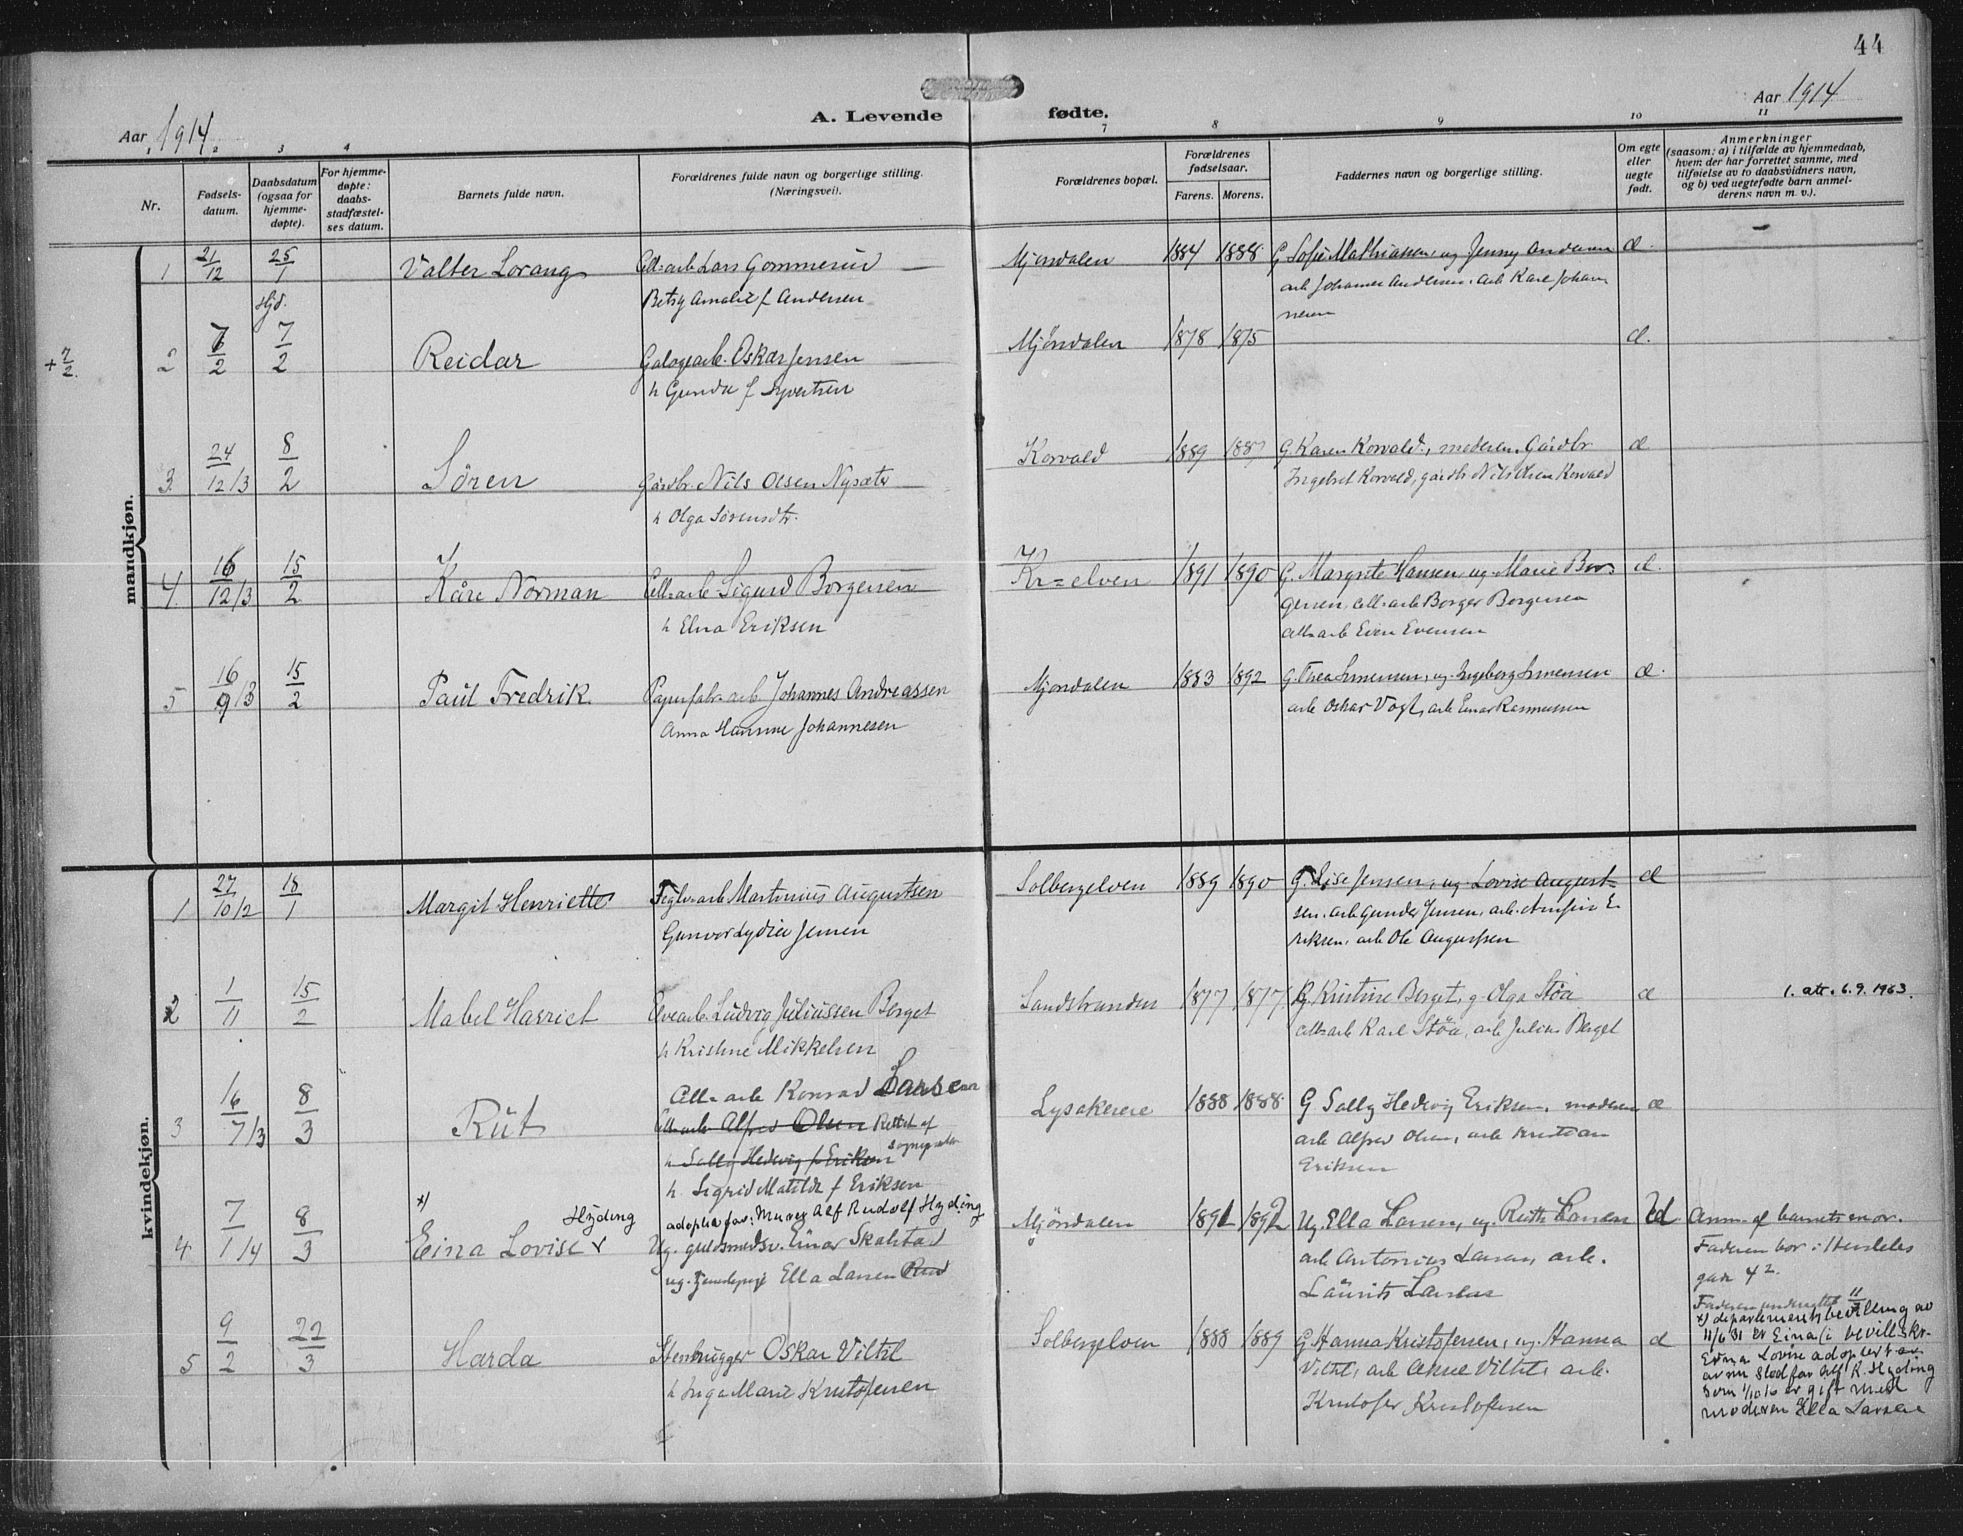 44
Aar 1914
A. Levende fødte.
Aar 1914
1 2 3 4 7 8 9 10 11
Nr.
Fødsels-
datum.
Daabsdatum
(ogsaa for
hjemme-
døpte).
For hjemme-
døpte:
daabs-
stadfæstel-
ses datum.
Barnets fulde navn.
Forældrenes fulde navn og borgerlige stilling.
(Næringsvei).
Forældrenes bopæl.
Forældrenes
fødselsaar.
Farens. Morens.
Faddernes navn og borgerlige stilling.
Om egte
eller
uegte
født.
Anmerkninger
(saasom: a) i tilfælde av hjemmedaab,
hvem der har forrettet samme, med
tilføielse av to daabsvidners navn,
og b) ved uegtefødte barn anmel-
derens navn m. v.).
mandkjøn.
1 21/12 25/1 Valter Lorang Cell-arb Lars Gommerud Mjøndalen 1884 1888 G Sofie Mathiassen, ug Jenny Andersen æ
Betsy Amalie f Andersen arb Johannes Andersen, arb Karl Johan
nesen
Hjd.
+ 7/2. 2 /2 7/2 Reidar arb. Oskar Jensen Mjöndalen 1878 1875 æ.
h Gunda f Syvertsen
3. 24/12/3 8/2 Sören Gårdbr Nils Olsen Nysæter Korvald 1889 G. Karen Korvald, moderen, Gårdbr æ
h Olga Sörensdtr. Ingebret Korvald, gårdbr Nils Olsen Korvald
4. 16/12/3 15/2 Kåre Norman Cell-arb Sigurd Borgersen Kr=elven 1891 1890 G. Margrete Hansen, ug. Marie Bor= æ.
h Elna Eriksen gersen, cell-arb Borger Borgersen
cell=arb Even Evensen
5 16/9/3 15/2 Paul Fredrik Papirfabr-arb Johannes Andreassen Mjøndalen 1883 1892 G. Thea Simensen, ug. Ingeborg Simensen æ.
Anna Hansine Johannesen arb Oskar Vogt, arb Einar Rasmussen
kvindekjøn.
1 27/10/2 18/1 Margit Henriette Teglv-arb Martinius Augustsen Solbergelven 1889 1890 G. Lise Jensen, ug Lovise August= æ
Gunvor Lydia Jensen sen. arb Gunder Jensen, arb. E-
riksen, arb Ole Augustsen
2 1/11 15/2 Mabel Harriet Elvearb. Ludvig Juliussen Berget Sandstranden 1877 1877 G. Kristine Berget, g. Olga Støa æ 1. att. 6.9.1963.
h Kristine Mikkelsen cell=arb Karl Støa, arb Julius Berget
Cell=arb Konrad Larsen
3 16/7/3 8/3 Rut Cell=arb Alfred Olsen Rettet af Lysakerere 1888 1888 G Sally Hedevig Eriksen, moderen æ
h Sally Hedevig f Eriksen arb Alfred Olsen, arb Kristian
h Sigrid Matilde f Eriksen Eriksen
x)
4. 7/1/4 8/3 Eina Lovise Hyding adoptivfar: Murer Alf Rudolf Hyding Mjöndalen 1891 1892 Ug. Ella Larsen, ug. Ruth Larsen Anm. af barnets mor.
Ug. guldsmedsv. Einar Skalstad arb Antonius Larsen, arb. Faderen bor i
ug. Ella Larsen Laurits Larsen 42.
Faderen underrettet
5 9/2 22/3 Harda Stenhugger Oskar Viltil Solbergelven 1888 1889 G Hanna Kristofersen, ug. Hanna æ x) departementets bevilling av
h Inga Marie Kristofersen Viltil, arb Aksel Viltil, arb. 11/6 31 er Eina (i bevill. skr.
Kristofer Kristofersen Erna Lovise adoptert av
av sin stedfar Alf R. Hyding
som er gift med
moderen Ella Larsen